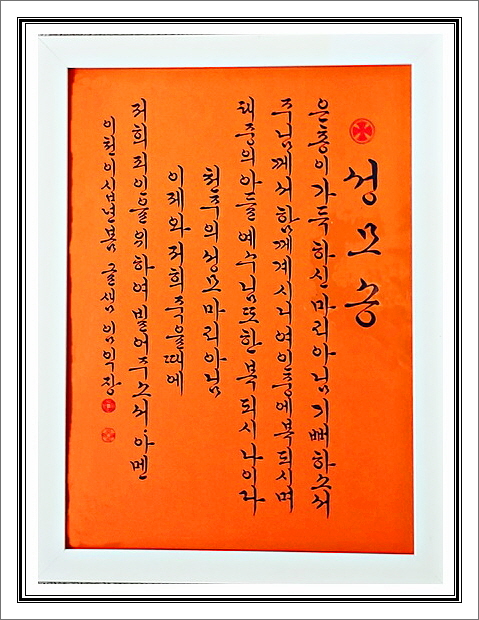 성모송
은총이 가득하신 마리아님 기뻐하소서
주님께서 함께 계시니 여인중에 복되시며
태중의 아들 예수님 또한 복되시나이다
천주의 성모 마리아님
이제와 저희 죽을때에
저희 죄인을 위하여 빌어주소서 아멘
이천이십년봄 글샘